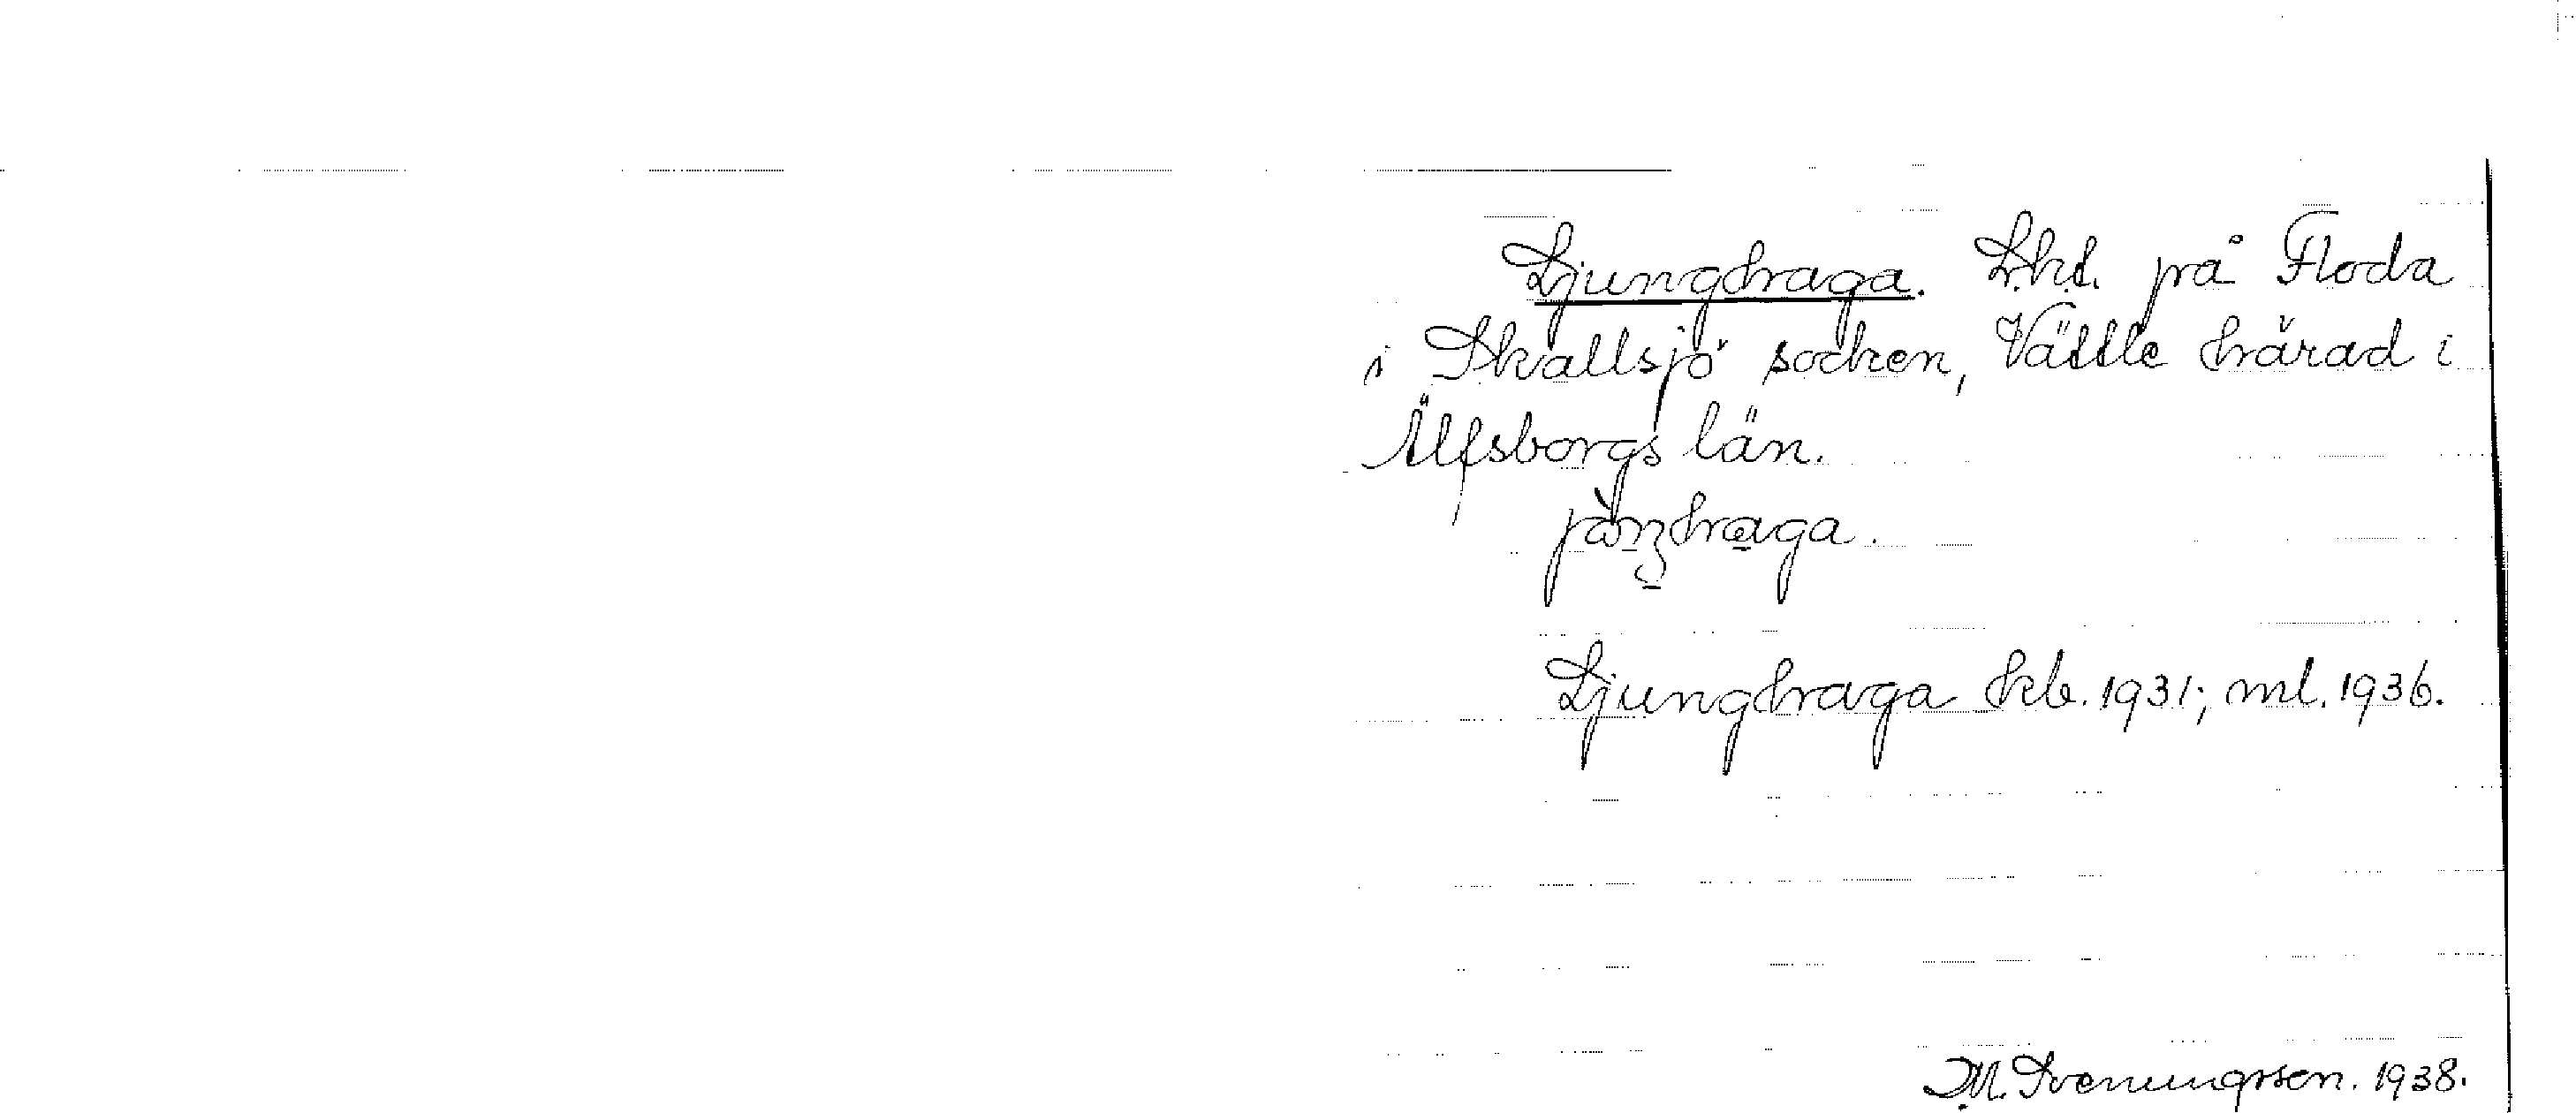 Ljunghaga. Lht. på Floda
i Skallsjö socken, Vättle härad i
Älfsborgs län.
jòŋhaga.
Ljunghaga hkb. 1931; ml. 1936.
M. Sveningsson. 1938.